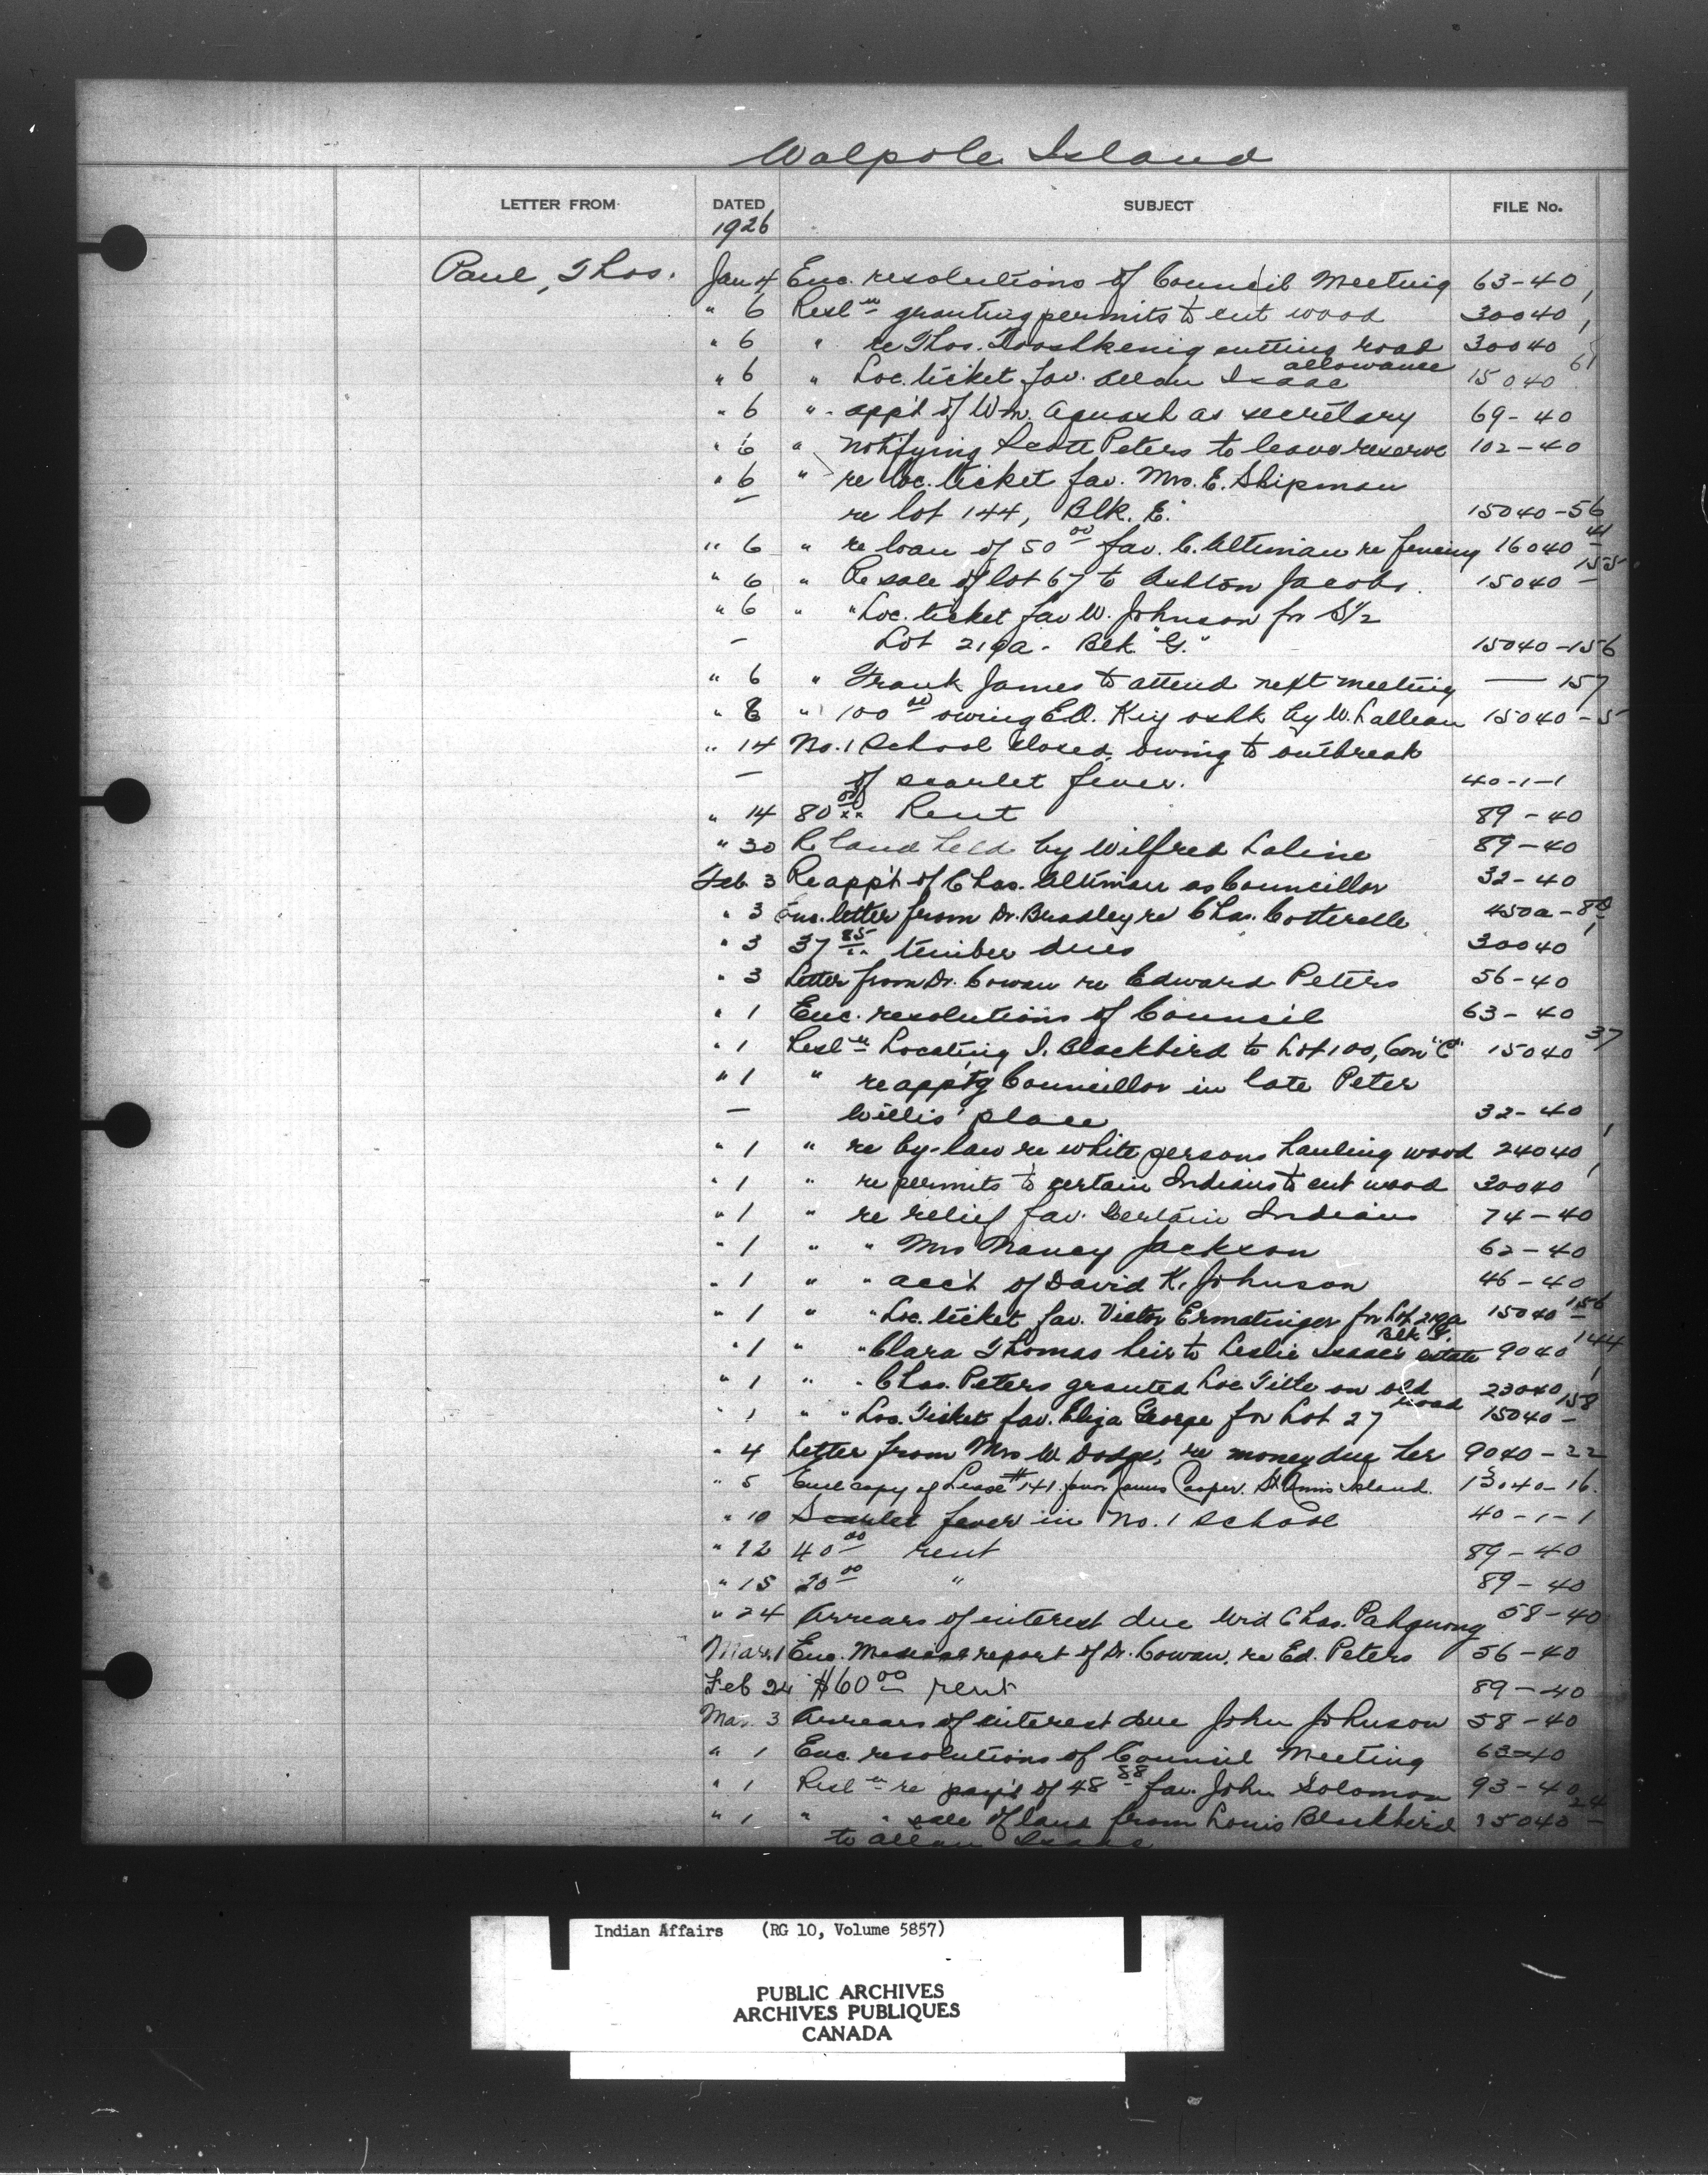 Walpole Island
LETTER FROM DATED SUBJECT FILE No.
1926
Paul, Thos. Jan 4 Enc. resolutions of Council Meeting 63-40
" 6 Resl'n granting permits to cut wood 30040,1
" 6 " re Thos. cutting road 30040
allowance
" 6 " Loc. ticket fav. Allan Isaac 15040 61
" 6 " app't of Wm. Aquash as secretary 69-40
" 6 " notifying Scott Peters to leave reserve 102-40
" 6 " re loc. ticket fav. Mrs. E. Shipman
— re lot 144, Blk. E. 15040-56
" 6 " re loan of 50 00 fav. C. Altiman re fencing 16040-41
" 6 " Re sale of lot 67 to Ashton Jacobs. 15040-155
" 6 " " Loc. ticket fav W. Johnson for S½
— Lot 219a - Blk "G." 15040-156
" 6 " Frank James to attend next meeting — 157
" 8 " 100 00 owing by W. 15040-5
" 14 No. 1 School closed, owing to outbreak
— of scarlet fever. 40-1-1
" 14 80 00 Rent 89-40
" 30 R land held by Wilfred 89-40
Feb 3 Re app't of Chas. Altiman as Councillor 32-40
" 3 Enc. letter from Dr. Bradley re Chas. Cotterelle 450a-8
" 3 37 85 timber dues 30040,1
" 3 Letter from Dr. Cowan re Edward Peters 56-40
" 1 Enc. resolutions of Council 63-40
" 1 Resl'n Locating J. Blackbird to Lot 100, Con "C" 15040 37
" 1 " re app'tg Councillor in late Peter
— Willis' place 32-40
" 1 " re by-law re white persons hauling wood 24040,1
" 1 " re permits to certain Indians to cut wood 30040,1
" 1 " re relief fav. Certain Indians 74-40
" 1 " " Mrs Nancy Jackson 62-40
" 1 " " acc't of David K. Johnson 46-40
" 1 " " Loc. ticket fav. Victor Ermatinger for Lot 219a 15040-156
Blk G.
" 1 " " Clara Thomas heir to Leslie Isaac's estate 9040 144
" 1 " " Chas. Peters granted Loc. Title on old 23040,1
road
" 1 " " Loc. Ticket fav. Eliza George for Lot 27 15040-158
" 4 Letter from Mrs W. Dodge, re money due her 9040-22
" 5 Encl copy of Lease #141 favor James Cooper. St Annis Island. 13040-16.
" 10 Scarlet fever in No. 1 School 40-1-1
" 12 40 00 rent 89-40
" 15 20 00 " 89-40
" 24 Arrears of interest due Wid Chas. Pahquong 58-40
Mar. 1 Enc. Medical report of Dr. Cowan, re Ed. Peters 56-40
Feb 24 $60 00 rent 89-40
Mar. 3 Arrears of interest due John Johnson 58-40
" 1 Enc. resolutions of Council Meeting 63-40
" 1 Resl'n re pay't of 48 88 fav. John Solomon 93-40
" 1 " " sale of land from Louis Blackbird 15040-24
to Allan Isaac
Indian Affairs (RG 10, Volume 5857)
PUBLIC ARCHIVES
ARCHIVES PUBLIQUES
CANADA